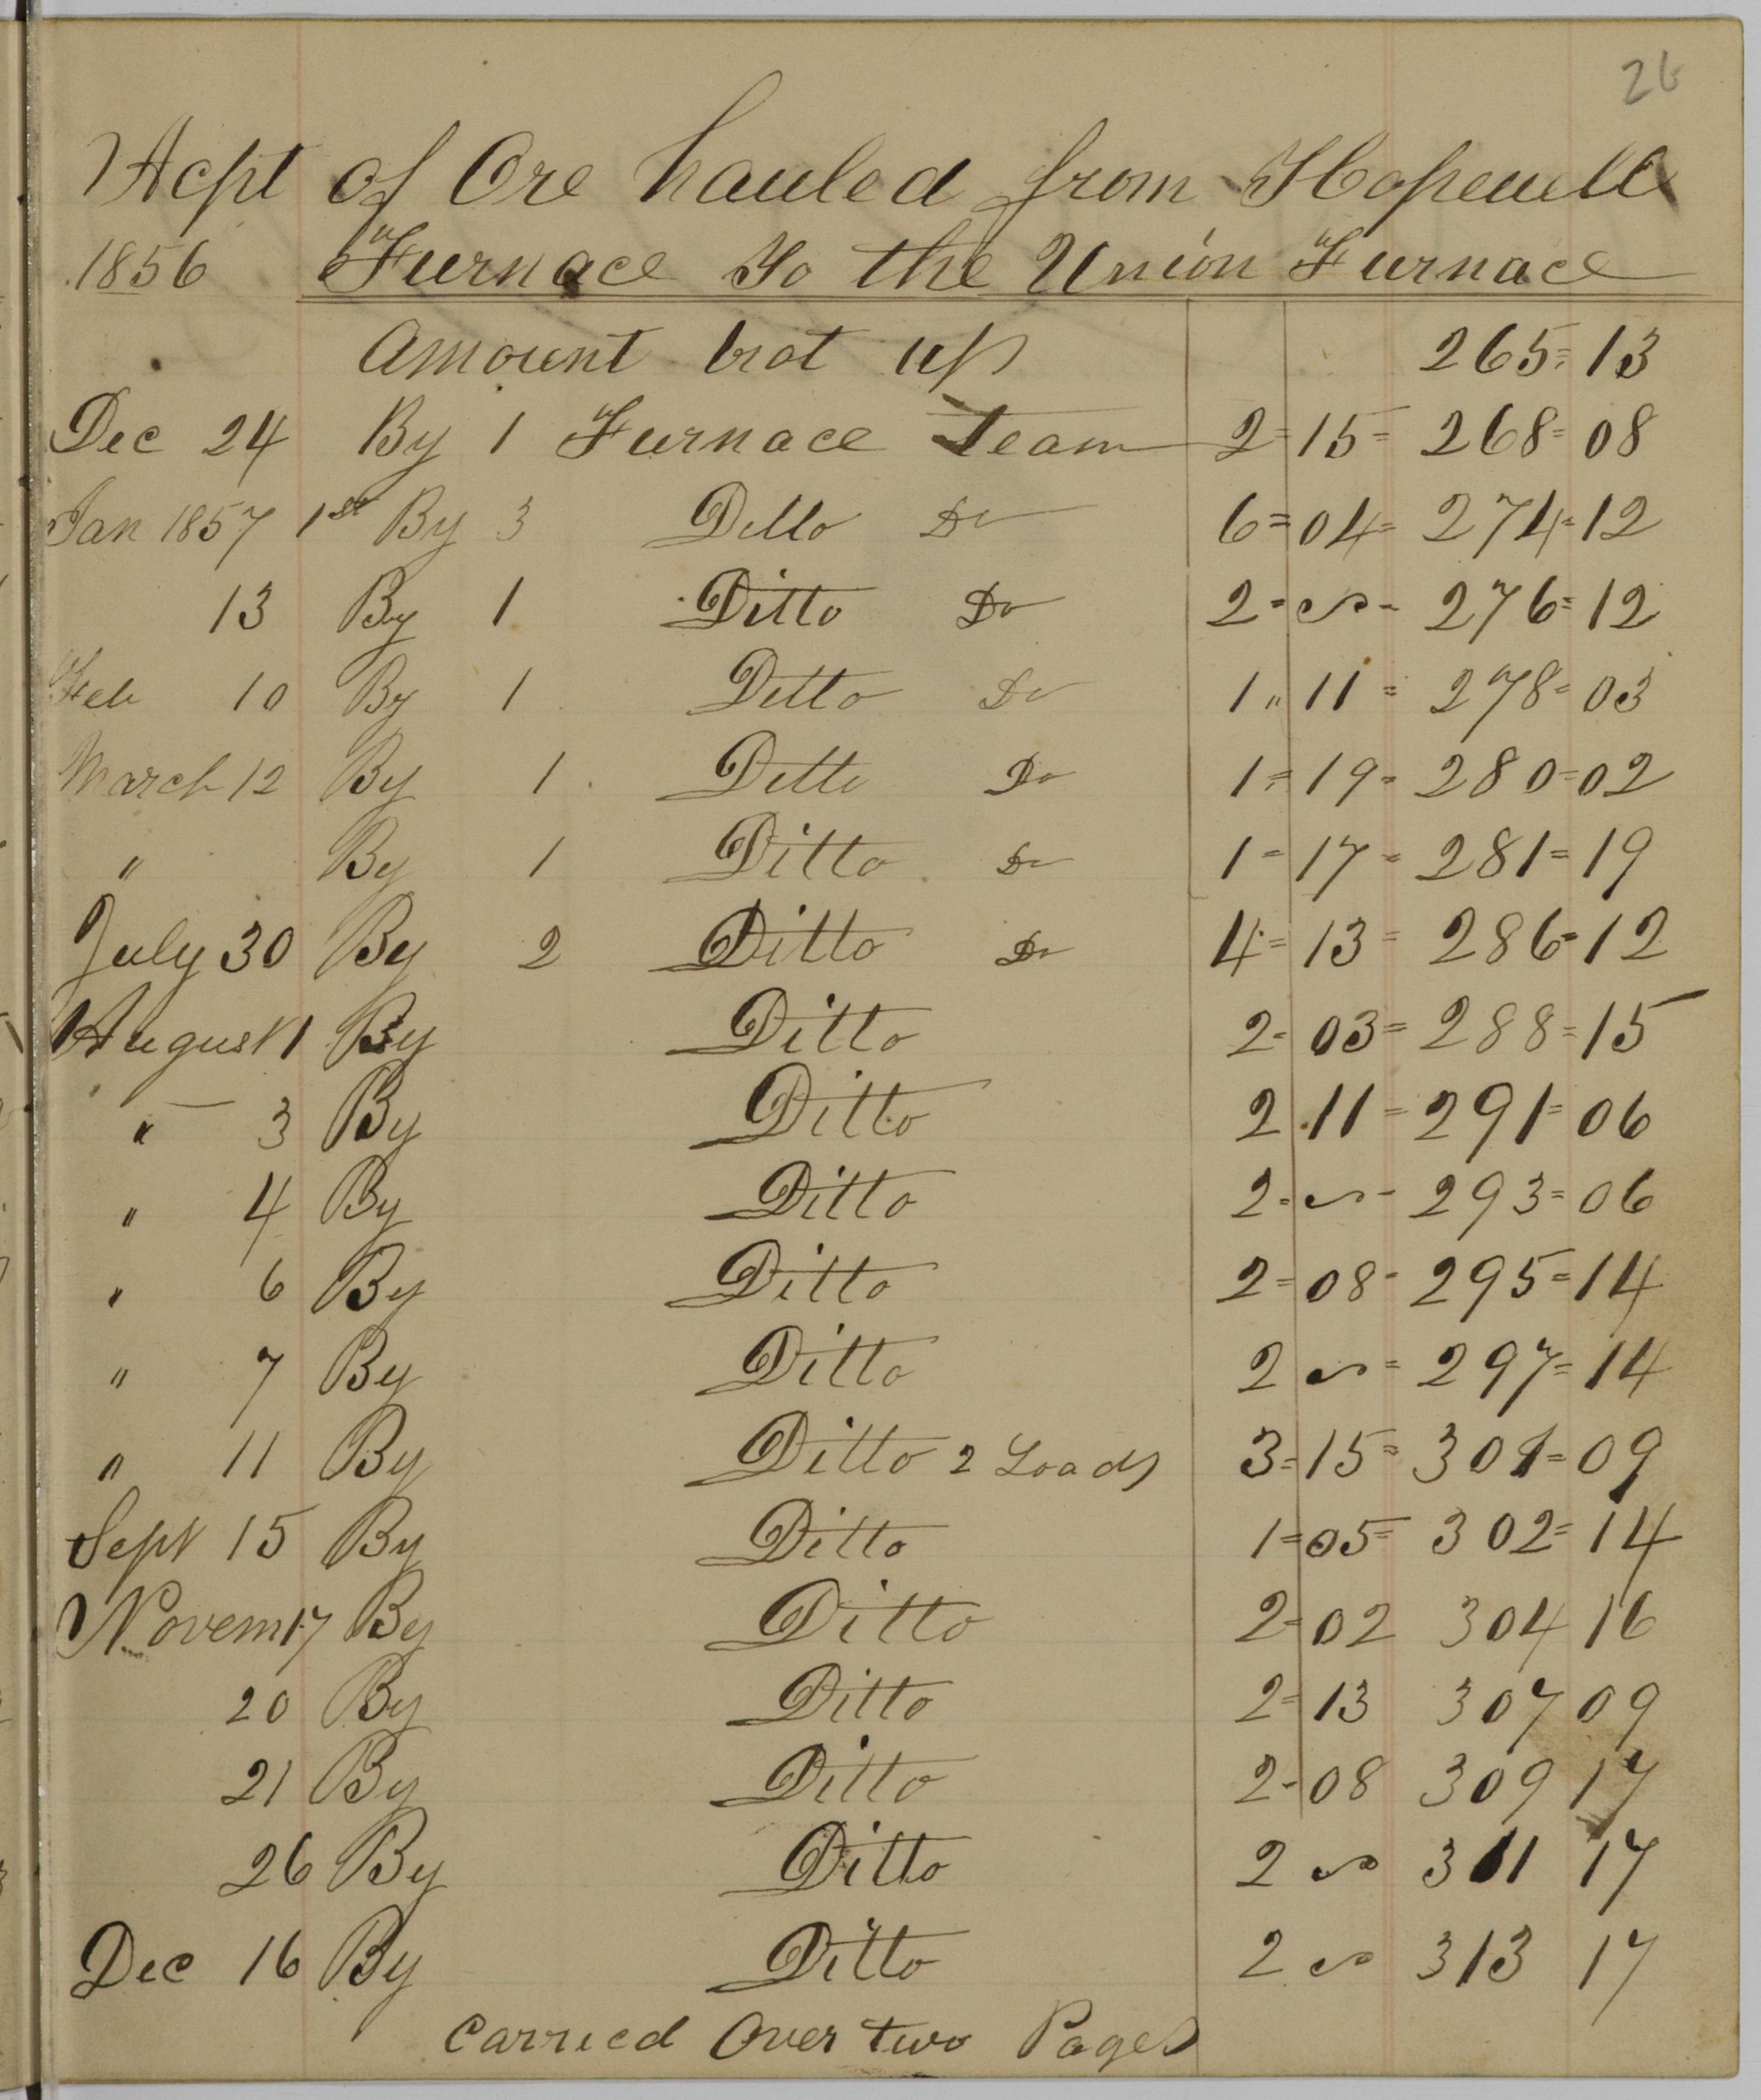 26
Acpt of Ore hauled from Hopewell
1856 Furnace To the Union Furnace
Amount brot up 265=13
Dec 24 By 1 Furnace Team 2=15= 268=08
Jan 1857 1st By 3 Ditto Do 6=04= 274=12
13 By 1 Ditto Do 2=~- 276=12
Feb 10 By 1 Ditto Do 1"11= 278=03
March 12 By 1 Ditto Do 1=19= 280=02
" By 1 Ditto Do 1=17= 281=19
July 30 By 2 Ditto Do 4=13= 286=12
August 1 By Ditto 2=03= 288=15
" 3 By Ditto 2 11= 291=06
" 4 By Ditto 2=~- 293=06
" 6 By Ditto 2=08- 295=14
" 7 By Ditto 2 ~= 297=14
" 11 By Ditto 2 Loads 3=15= 301=09
Sept 15 By Ditto 1=05= 302=14
Novem 17 By Ditto 2=02 304 16
20 By Ditto 2=13 307 09
21 By Ditto 2-08 309 17
26 By Ditto 2 ~ 311 17
Dec 16 By Ditto 2 ~ 313 17
Carried Over two Pages